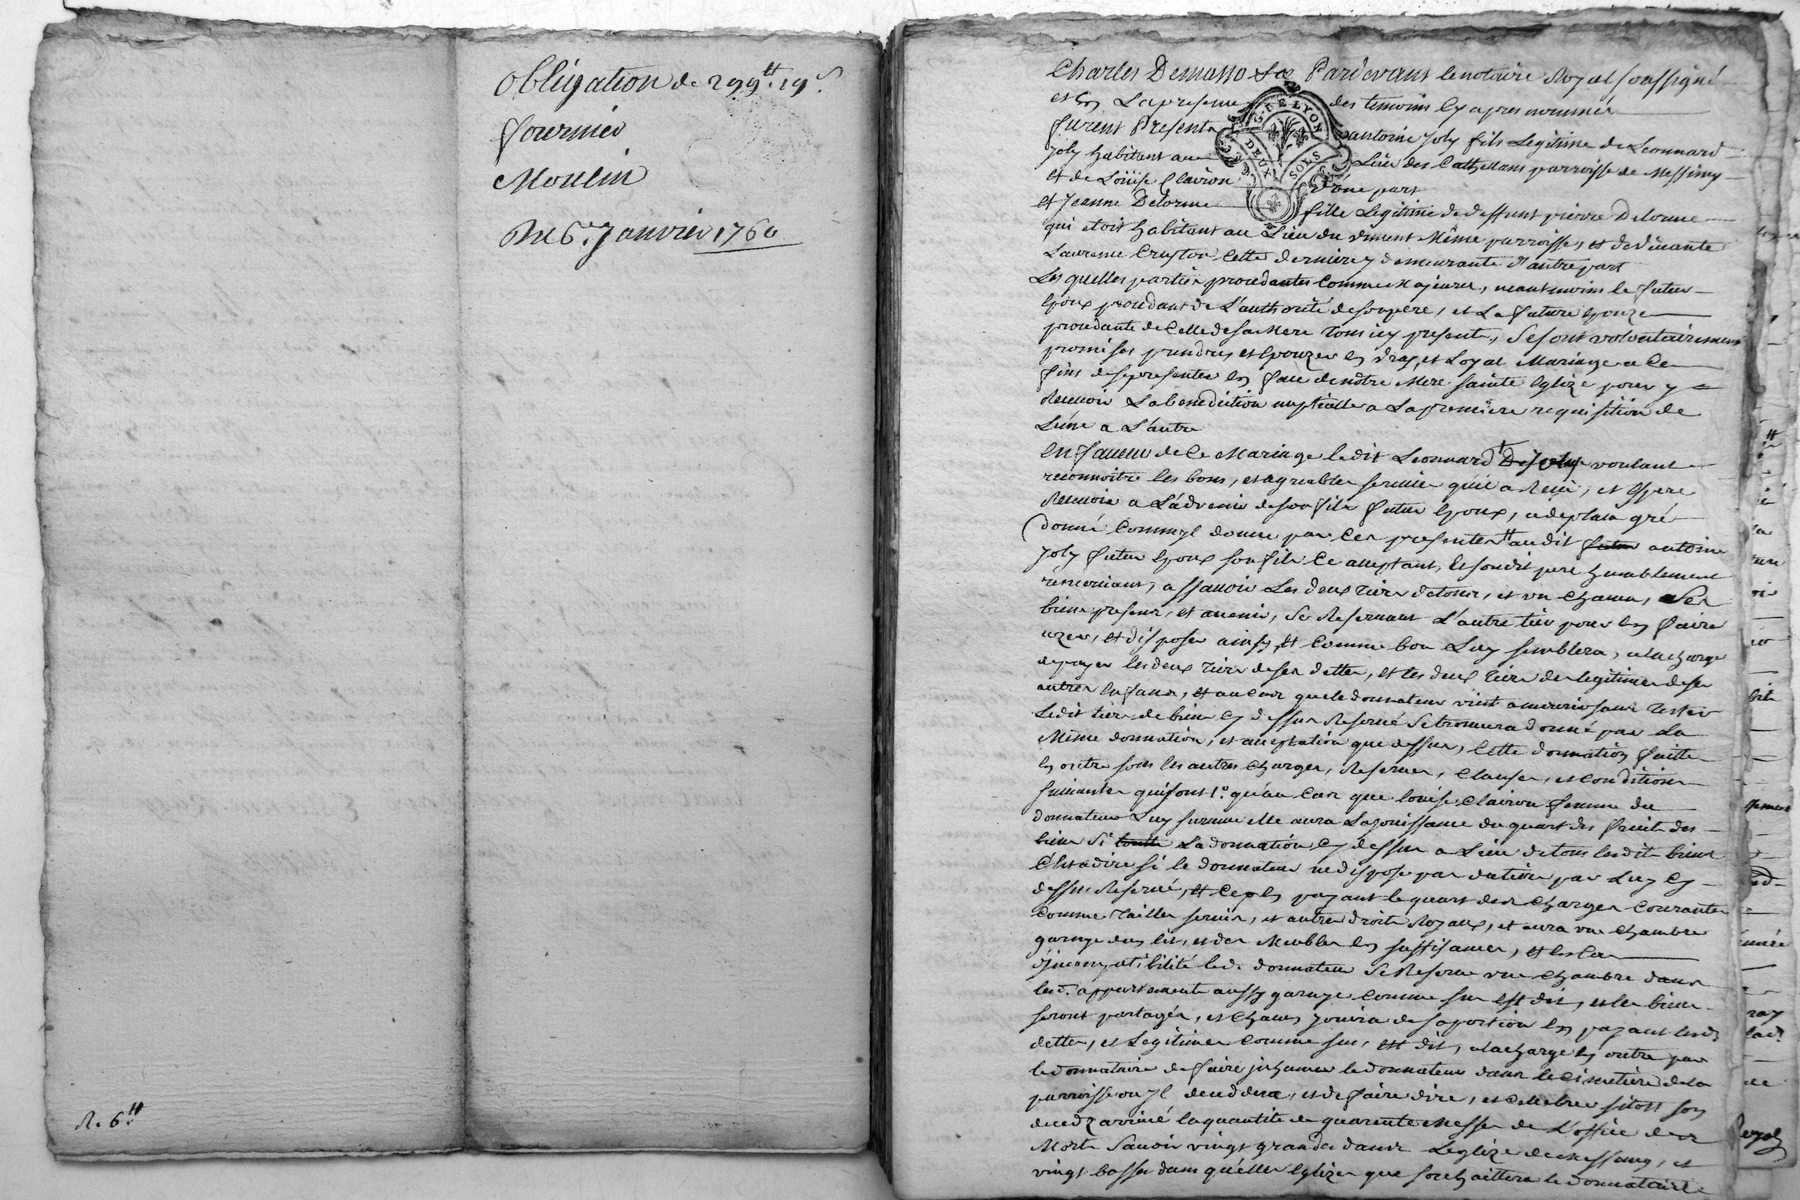 Obligation de 299.tt 19.s
fournier
Moulin
Du 6. Janvier 1760
R. 6.tt
Pardevant le notoire Royal soussigné
et en La presence des temoins cy apres nommés
furent Presents antoine Joly fils Legitime de Leonnard
Joly habitant au Lieu des parroisse de Messimy
et de Loüise Clairon d'une part
et Jeanne Delorme fille Legitime de deffunt pierre Delorme
qui etoit habitant au Lieu du Même parroisse, et de vivante
Laurence cette derniere y demeurante d'autre part
Lesquelles parties procedantes Comme Majeures, neantmoins le futur
Epoux procedant de L'authorité de son pere, et La future Epouze
procedante de Celle de sa Mere tous icy presents, Se sont volontairement
promis se prendre et Epouzer en vray, et Loyal Mariage a Ce
fins de se presenter en face de nôtre Mere Sainte Eglize pour y
Recevoir La benediction nuptialle a La premiere requisition de
L'une a L'autre
En faveur de Ce Mariage ledit Leonnard Joly voulant
reconnoitre les bons, et agreables services qu'il a Reçu, et Espere
Recevoir a L'advenir de son fils futur Epoux, a de plain gré
donné Comm'yl donne par Ces presentes audit futur antoine
Joly futur Epoux son fils Ce acceptant, et sondit pere humblement
remerciant, a sçavoir Les deux tiers de tous, et un chacun, Ses
biens presents, et avenir, Se Reservant L'autre tier pour en faire
uzer, et disposer ainsy, et Comme bon Luy semblera, a la charge
de payer les deux tiers de ses dettes, et les deux tiers des legitimes de ses
autres Enfans, et au cas que le donnateur vint a mourir sans tester
Ledit tier de biens cy dessus Reservé Se trouvera donné par La
Même donnation, et acceptation que dessus, Cette donnation faite
En outre sous les autres charges, Reserves, clauses, et conditions
suivantes qui sont 1.° qu'au Cas que Loüise Clairon femme du
donnateur Luy survive elle aura La jouissance du quart des fruits des
biens si La donnation cy dessus a Lieu de tous lesdits biens
C'est a dire si le donnateur ne dispose pas du tier par Luy cy
dessus Reservé, et Ce en payant le quart des charges Courantes
Comme tailles services, et autres droits Royaux, et aura une chambre
garnye d'un lit, et des Meubles en suffisance, et en Cas
d'incompatibilité led. donnateur Se Reserve une chambre dans
led. appartement aussy garnye Comme sus est dit, et les biens
seront partagés, et chacun Jouira de sa portion en payant lesd.
dettes, et Legitimes Comme sus est dit, a la charge en outre par
le donnataire de faire inhumer le donnateur dans le Cimetière de la
parroisse ou Jl decedera, et de faire dire, et Celebrer sitost son
deced arrivé la quantité de quarente Messes de L'office des
Morts Savoir vingt grandes dans L'eglize de Messimy, et
vingt basses dans qu'elle Eglize que souhaittera le donnataire
G. DE LYON
DEUX SOLS